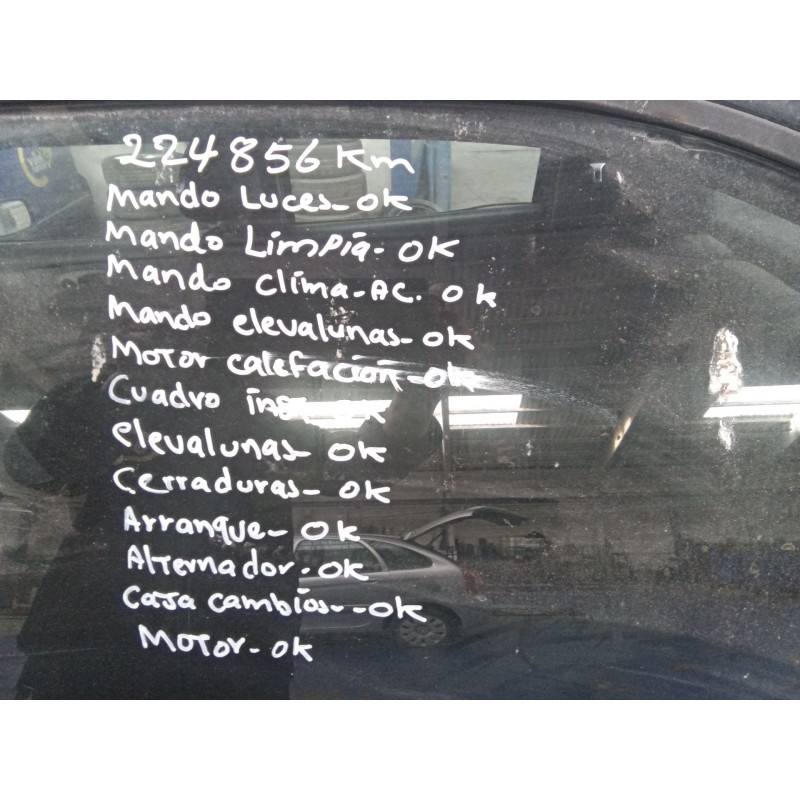 224856 Km
Mando Luces-OK
Mando Limpia-OK
Mando clima-AC. OK
Mando elevalunas-OK
Motor calefación-OK
Cuadro inst-OK
elevalunas-OK
Cerraduras-OK
Arranque-OK
Alternador-OK
Caja cambios--OK
Motor-OK